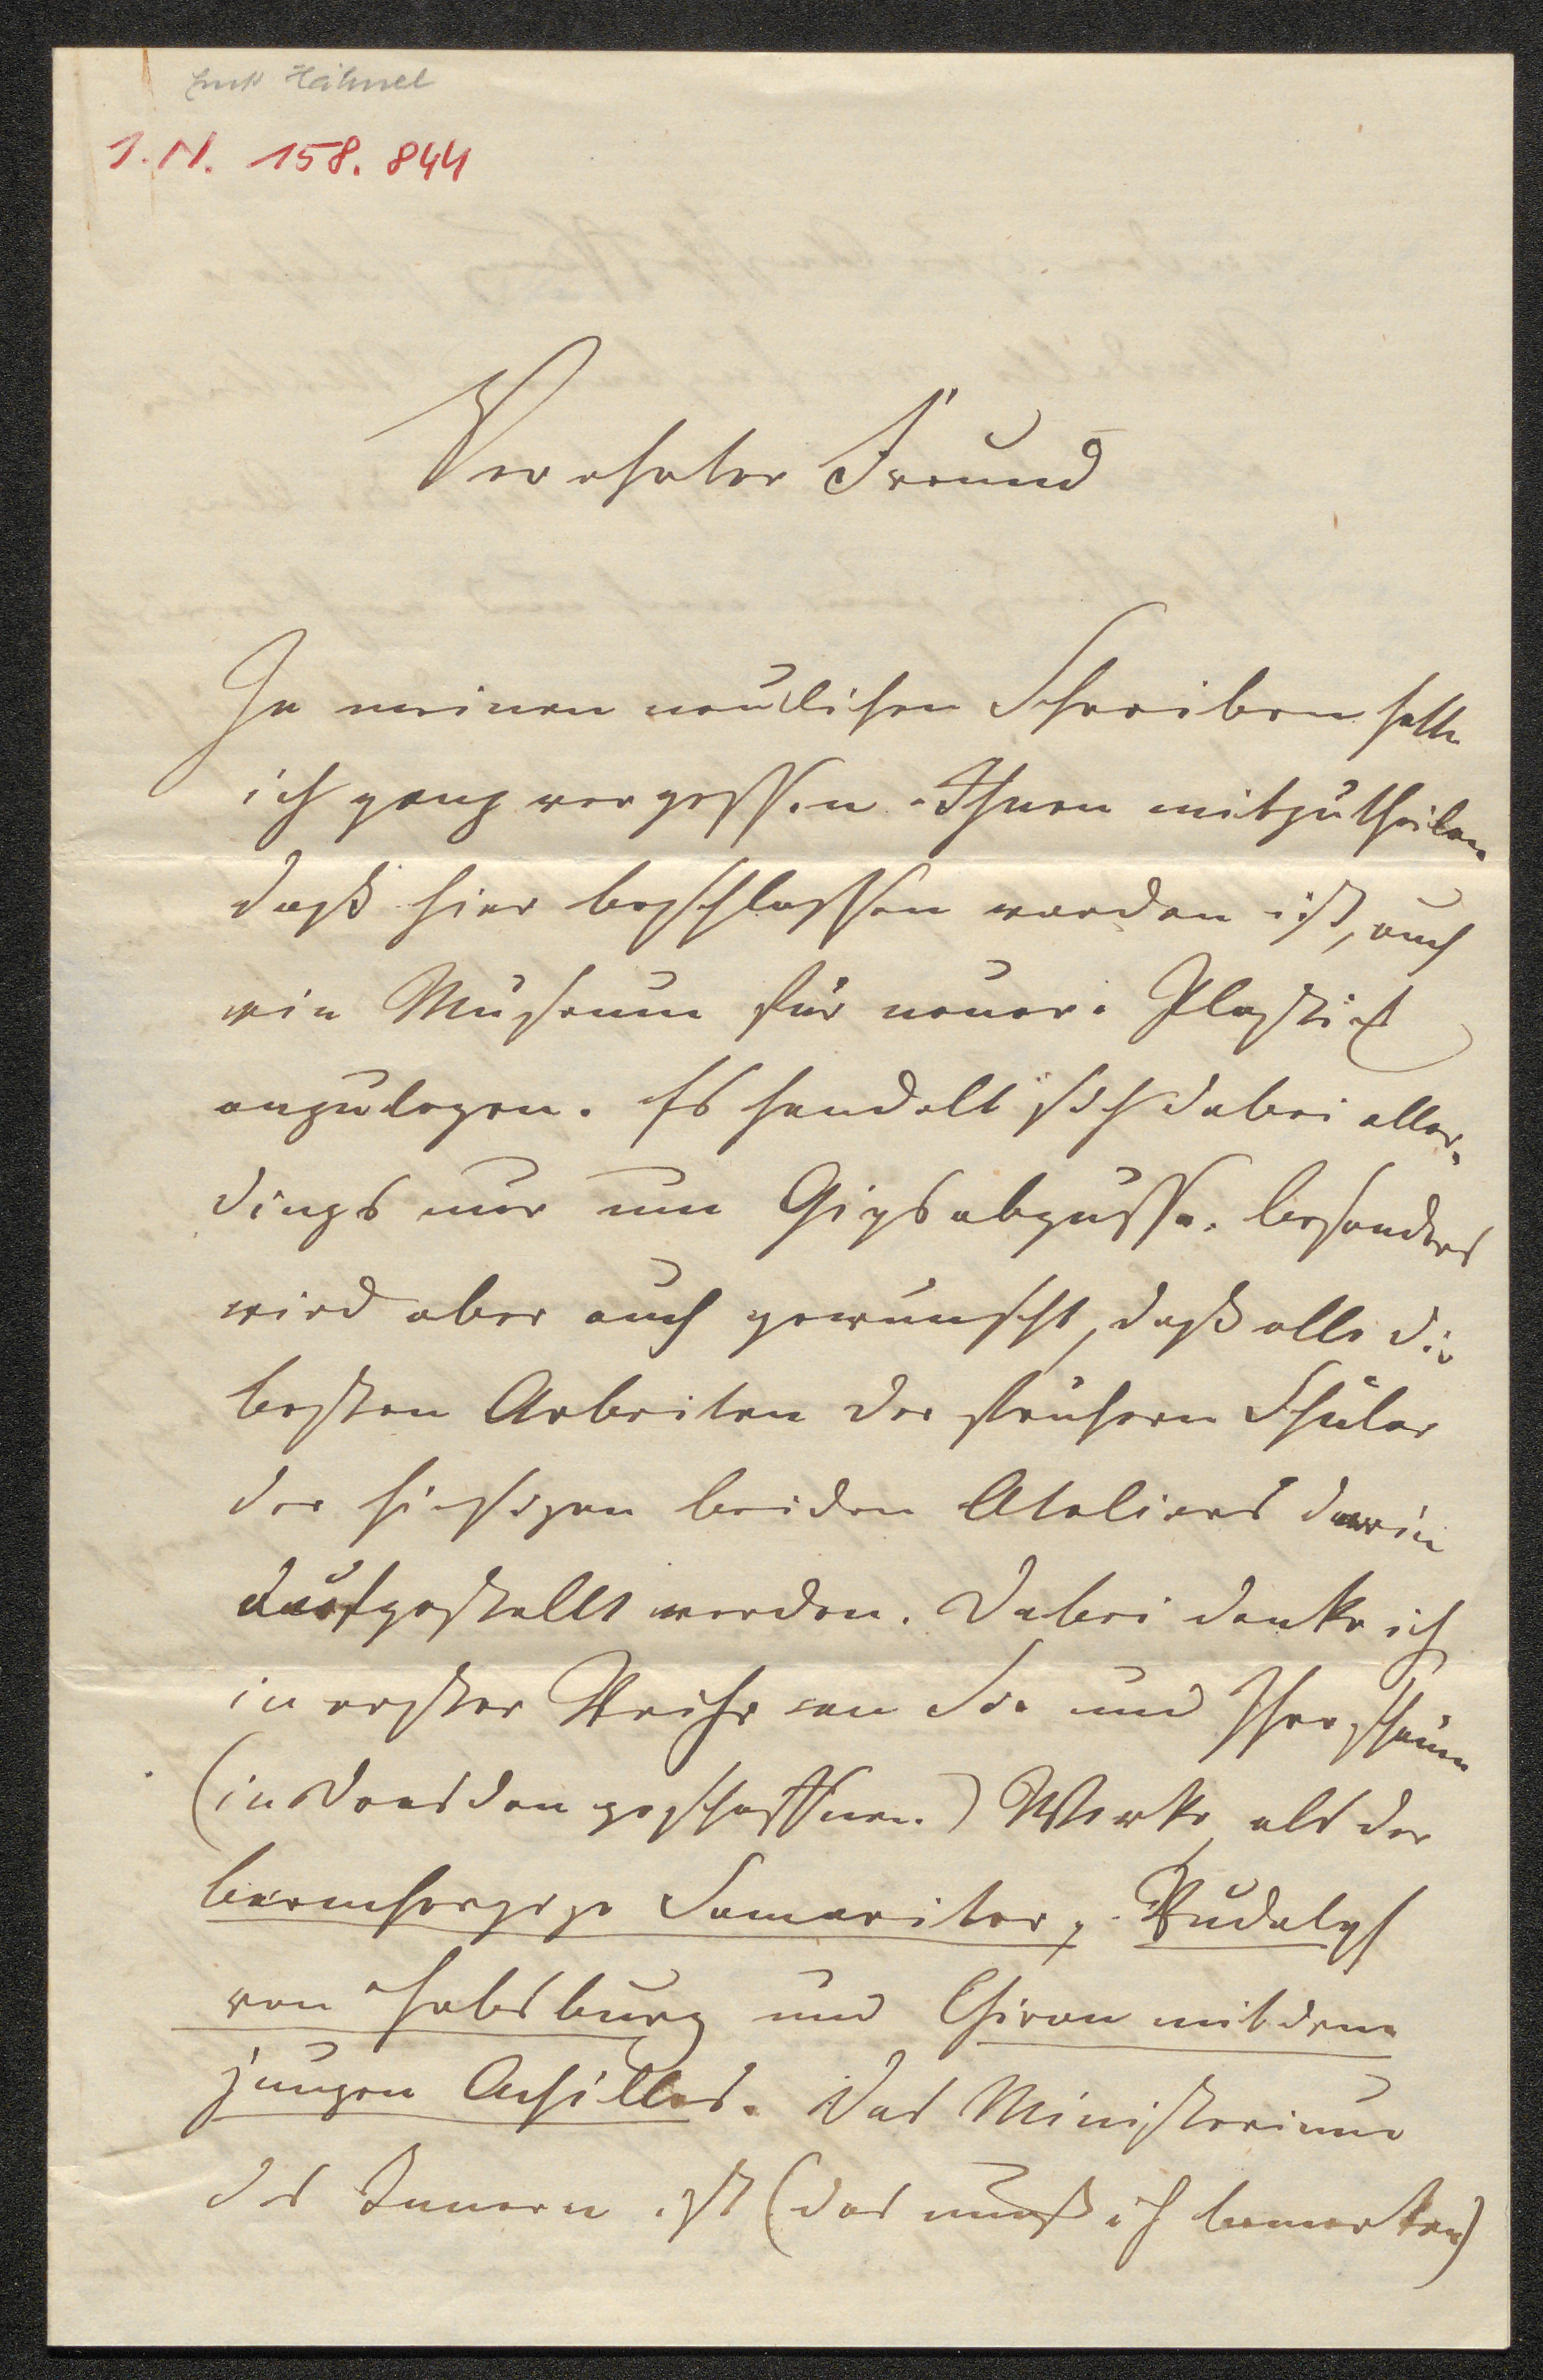 Ernst Hähnel
I.N. 158.844
Verehrter Freund
In meinen neulichen Schreiben hatte
ich ganz vergessen Ihnen mitzutheilen
daß hier beschlossen worden ist, auch
ein Museum für neuere Plastik
anzulegen. Es handelt sich dabei aller,
dings nur um Gipsabgüsse. Besonders
wird aber auch gewünscht, daß alle die
besten Arbeiten der frühern Schüler
der hiesigen beiden Ateliers darin
aufgestellt werden. Dabei denke ich
in erster Reihe an Sie und Ihre schönen
(in Dresden geschaffnen) Werke, als der
barmherzige Samariter, Rudolph
von Habsburg und Chiron mit dem
jungen Achilles. Das Ministerium
des Innern ist (das muß ich bemerken)